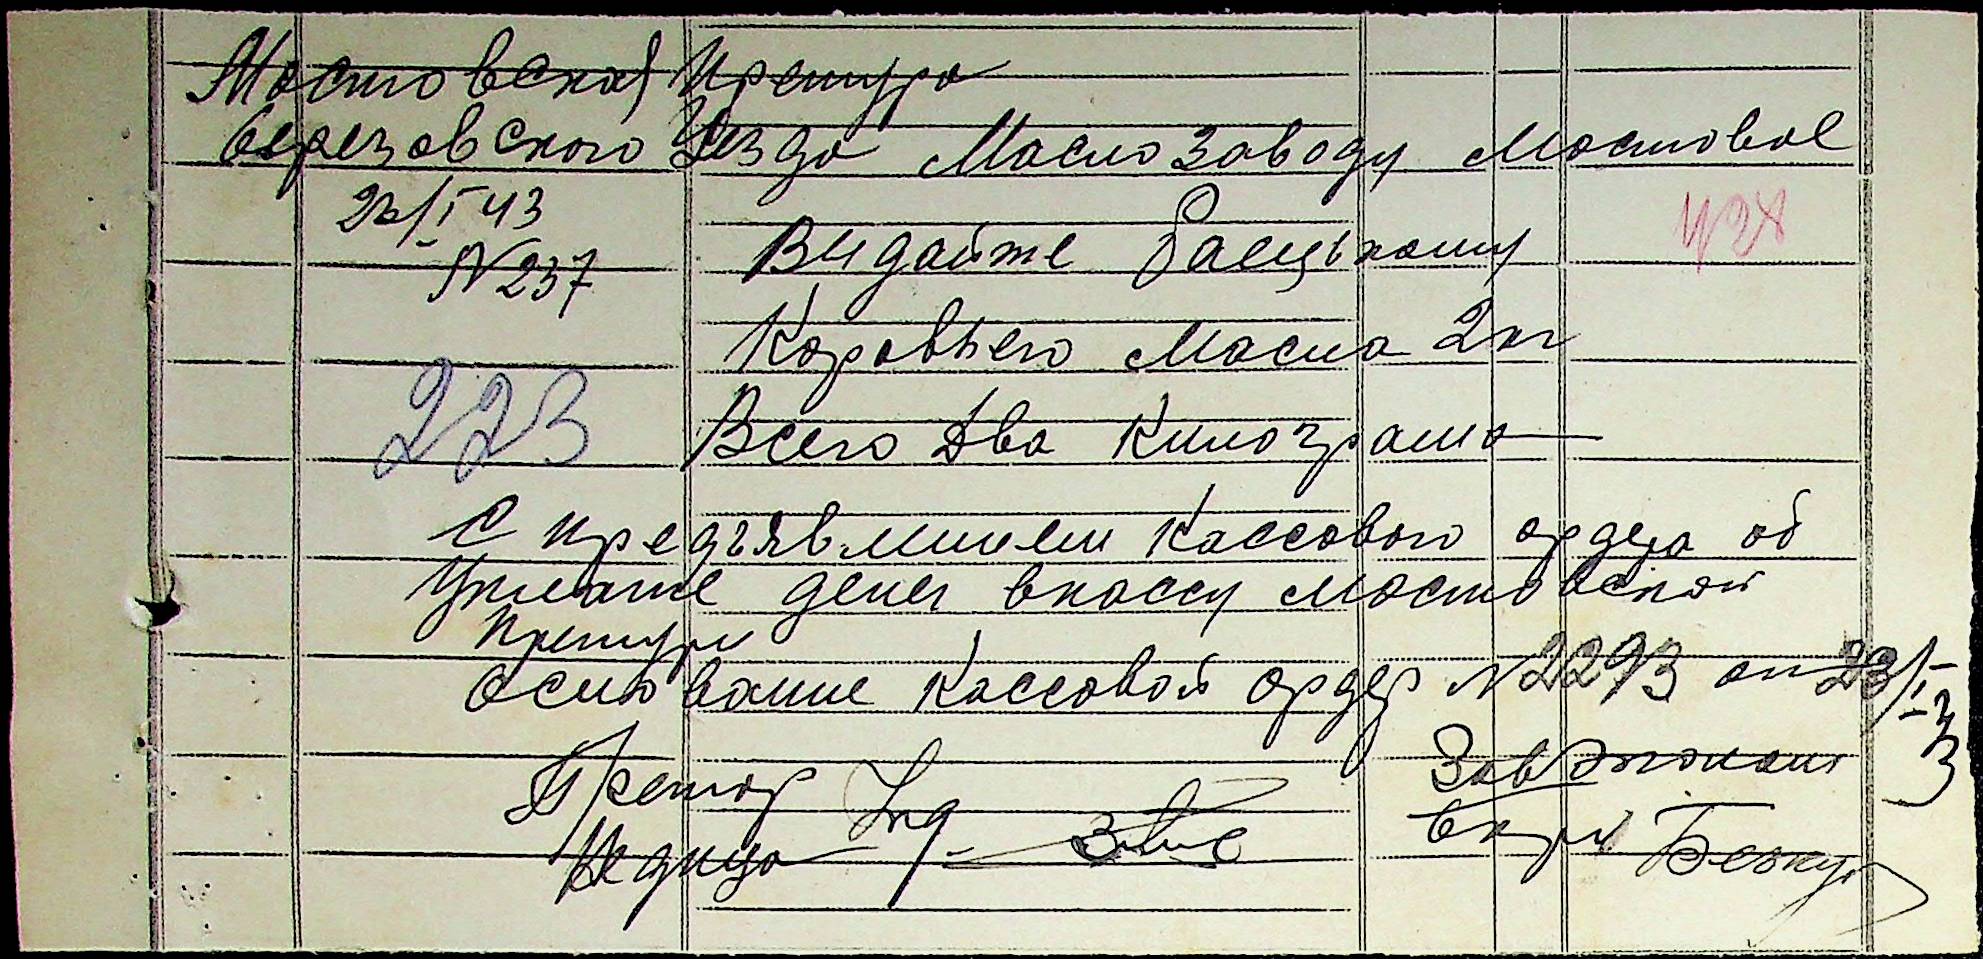 Мостовская Претура
Березовского Уезда Маслозаводу Мостовое
22/I 43
N 237
Видайте
Коровьего Масла 2 кг
223 Всего Два Килограма
С предъявлинием Кассового ордера об
Уплате денег в кассу Мостовской
Претури
Основание Кассовой ордер N 2293 от 23/I-
43
Претор Зав. Экономич